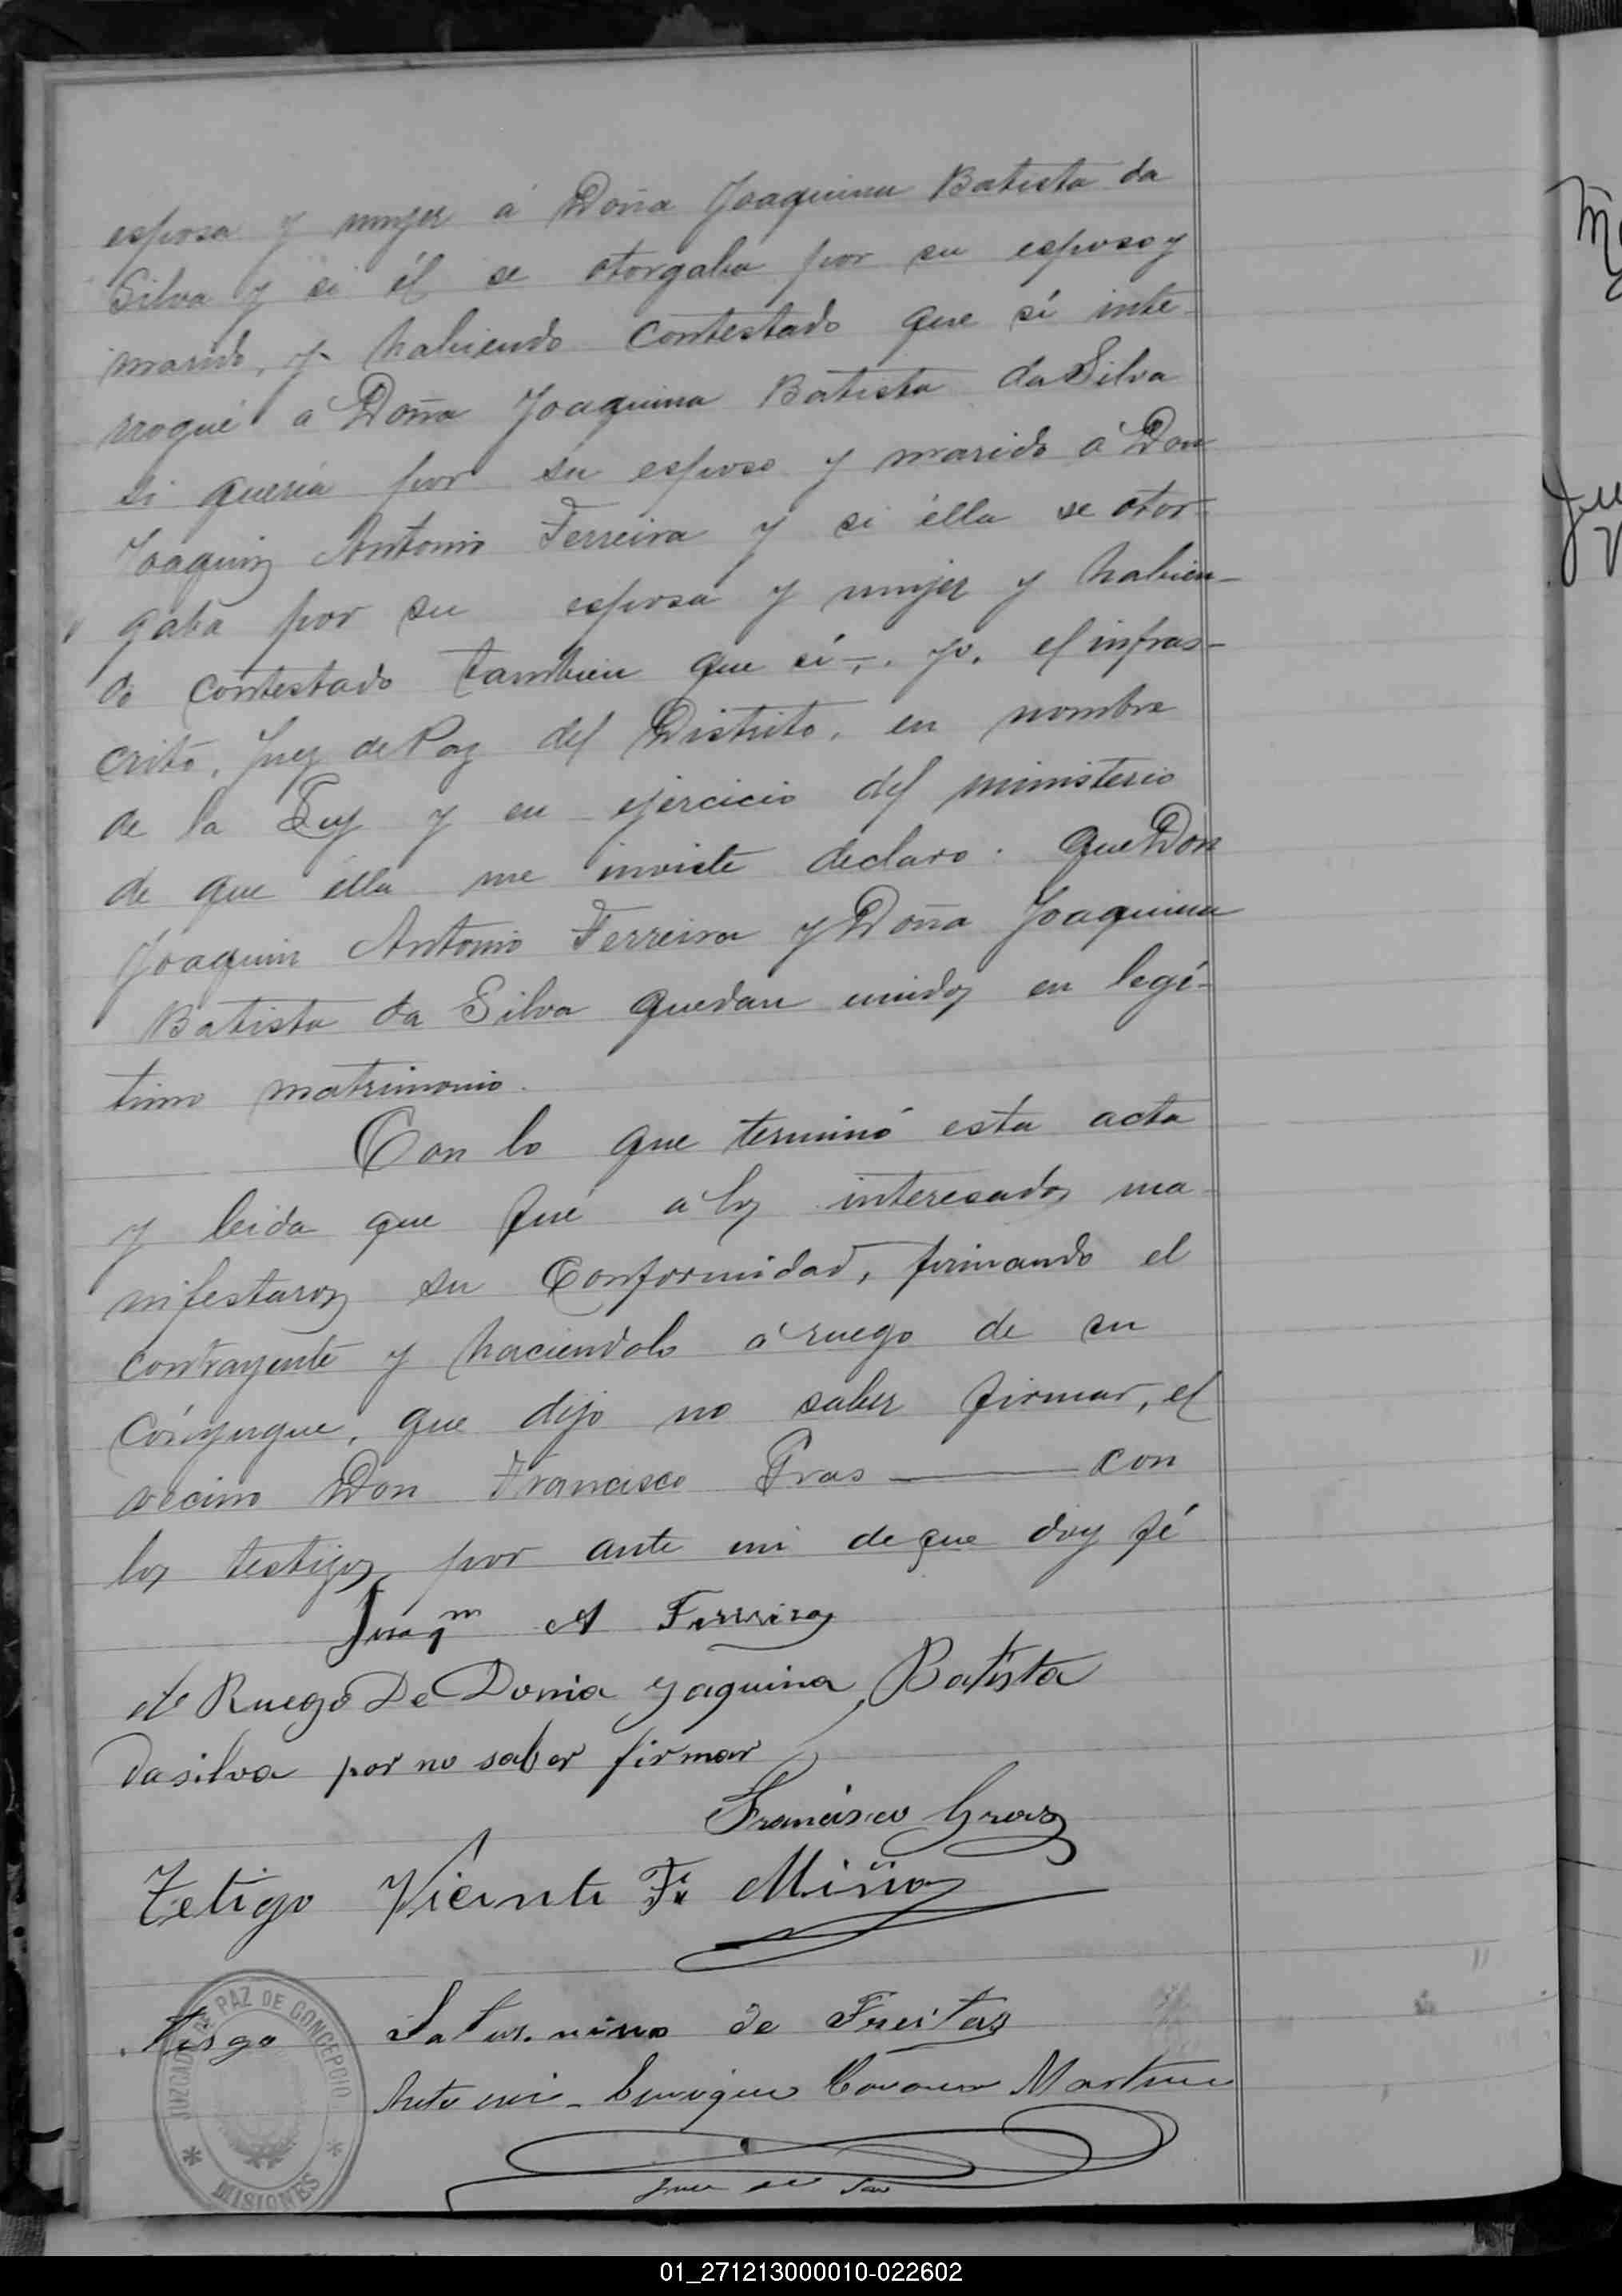 esposa y mujer á Doña Joaquina Batista da
Silva y si él se otorgaba por su esposo y
marido, y habiendo contestado que sí inte-
rroqué a Doña Joaquina Batista da Silva
si quería por su esposo y marido á Don
Joaquin Antonio Ferreira y si élla se otor-
gaba por su esposa y mujer y habien-
do contestado tambien que sí-, yo, el infras-
crito, Juez de Paz del Distrito, en nombre
de la Ley y en ejercicio del ministerio
de que élla me inviste declaro: que Don
Joaquin Antonio Ferreira y Doña Joaquina
Batista da Silva quedan unidos en legí-
timo matrimonio.
Con lo que terminó esta acta
y leida que fué a los interesados ma-
nifestaron su conformidad, firmando el
contrayente y haciendolo á ruego de su
cónyugue, que dijo no saber firmar, el
vecino Don Francisco Gras ——— con
los testigos por ante mi de que doy fé
Joaqm A Ferreira
A Ruego De Donia yaquina Batista
Dasilva por no saber firmar
Francisco Gras
Tetigo Vicente F. Miño
Saturnino de Freitas
Ante mi - Martinez
Juez de Paz
JUZGADO DE PAZ DE CONCEPCIO
* MISIONES *
01_271213000010-022602